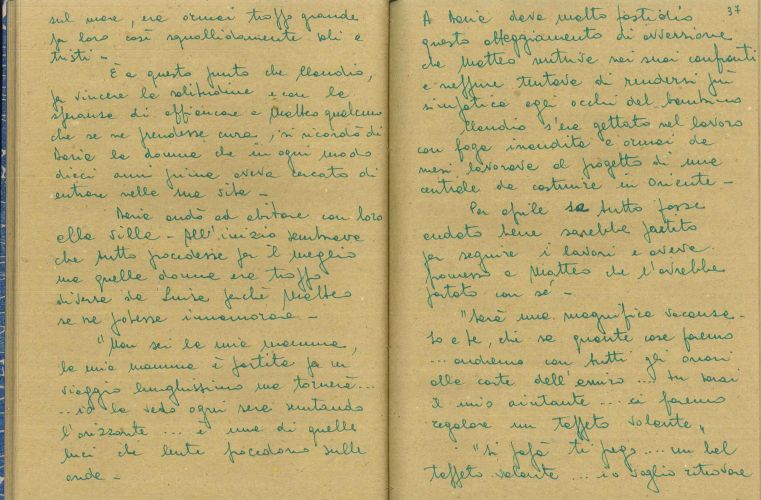 sul mare, era ormai troppo grande
per loro così squallidamente soli e
tristi -
È a questo punto che Claudio,
per vincere la solitudine e con la
speranza di affiancare a Matteo qualcuno
che se ne prendesse cura, si ricordò di
Daria la donna che in ogni modo
dieci anni prima aveva cercato di
entrare nella sua vita -
Daria andò ad abitare con loro
alla villa - All'inizio sembrava
che tutto procedesse per il meglio
ma quella donna era troppo
diversa da Luisa perchè Matteo
se ne potesse innamorare -
"Non sei la mia mamma,
la mia mamma è partita per un
viaggio lunghissimo ma tornerà...
...io la vedo ogni sera scrutando
l'orizzonte ... è una di quelle
luci che lente procedono sulle
onde -
37
A Daria dava molto fastidio
questo atteggiamento di avversione
che Matteo nutriva nei suoi confronti
e neppure tentava di rendersi più
simpatica agli occhi del bambino
Claudio s'era gettato nel lavoro
con foga inaudita e ormai da
mesi lavorava al progetto di una
centrale da costruire in Oriente -
Per aprile se tutto fosse
andato bene sarebbe partito
per seguire i lavori e aveva
promesso a Matteo che l'avrebbe
portato con sé -
"Sarà una magnifica vacanza -
Io e te, chi sa quante cose faremo
... andremo con tutti gli onori
alla corte dell'emiro ... tu sarai
il mio aiutante ... ci faremo
regalare un tappeto volante"
"Sì papà ti prego .... un bel
tappeto volante ... io voglio ritrovare